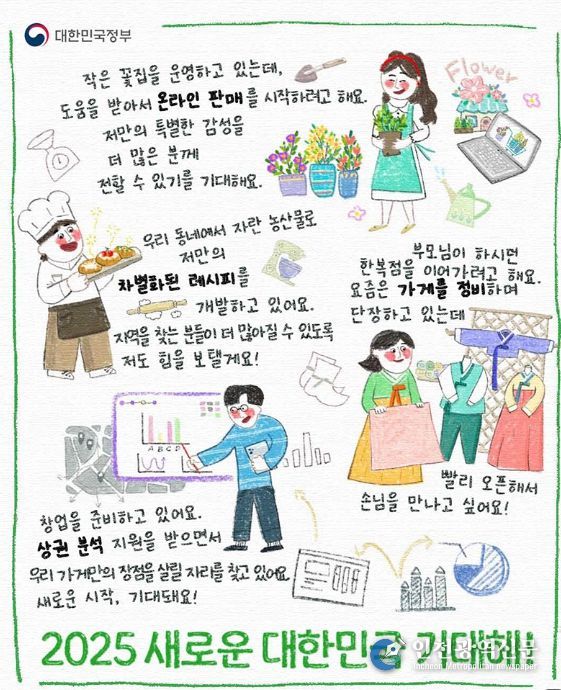 대한민국정부
작은 꽃집을 운영하고 있는데,
도움을 받아서 온라인 판매를 시작하려고 해요.
저만의 특별한 감성을
더 많은 분께
전할 수 있기를 기대해요.
Flower
우리 동네에서 자란 농산물로
저만의
차별화된 레시피를
개발하고 있어요.
지역을 찾는 분들이 더 많아질 수 있도록
저도 힘을 보탤게요!
부모님이 하시던
한복점을 이어가려고 해요.
요즘은 가게를 정비하며
단장하고 있는데
빨리 오픈해서
손님을 만나고 싶어요!
A B C D
창업을 준비하고 있어요.
상권 분석 지원을 받으면서
우리 가게만의 장점을 살릴 자리를 찾고 있어요.
새로운 시작, 기대돼요!
2025 새로운 대한민국 기대해!
인천광역신문
Incheon Metropolitan newspaper